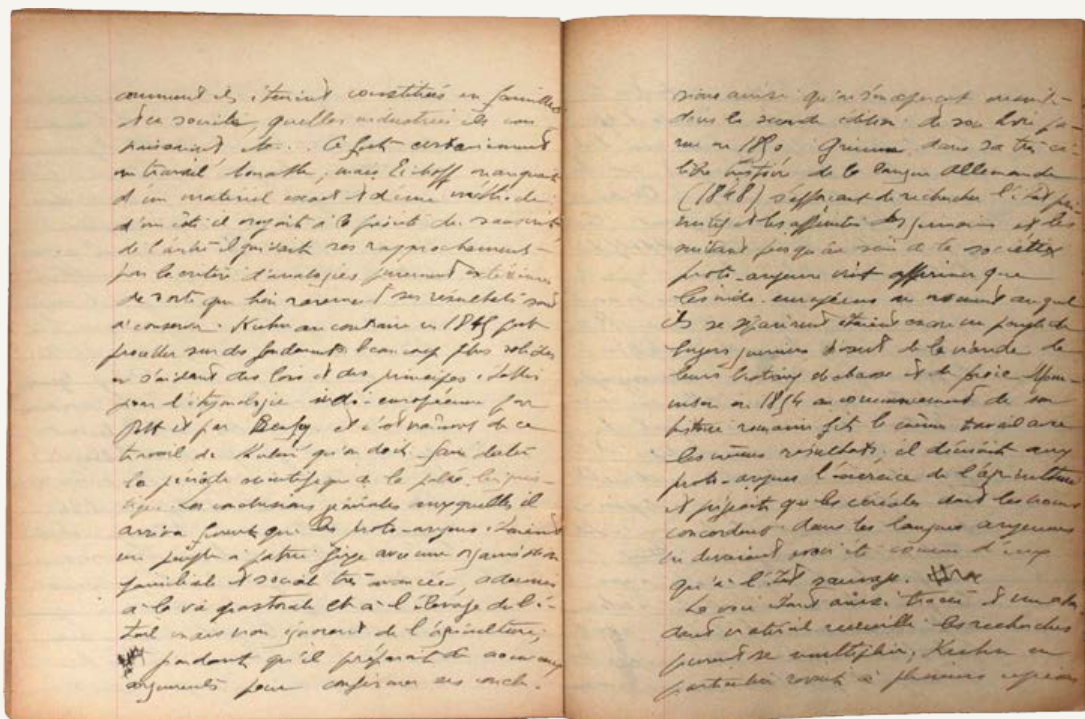 comment ils étaient constitués en familles
et en sociétés quelles industries ils con
naissaient etc... Ce fut certainement
un travail honnête, mais Eichoff manquait
d'un matériel exact et d'une méthode:
d'un côté il croyait à la priorité du sanscrit
de l'autre il guidait ses rapprochements
par le critère d'analogies purement extérieures
de sorte que bien rarement ses résultats sont
à conserver. Kuhn au contraire en 1845 put
procéder sur des fondements beaucoup plus solides
en s'aidant des lois et des principes établis
pour l'étymologie indo-européenne par
Pott et par Benfey et c'est vraiment de ce
travail de Kuhn qu'on doit faire dater
la période scientifique de la paléo linguis-
tique. Les conclusions générales auxquelles il
arriva furent que les proto-aryens étaient
un peuple à patrie fixe avec une organisation
familiale et sociale très avancée, adonnés
à la vie pastorale et à l'élevage du bé-
tail mais non ignorant de l'agriculture;
pendant qu'il préparait de nouveaux
arguments pour confirmer ses conclu-
sions ainsi qu'on s'en aperçoit ensuite
dans la seconde édition de son livre pa-
rue en 1850 Grimm dans sa très cé-
lèbre histoire de la langue Allemande
(1848) s'efforçant de rechercher l'état pri-
mitif et les affinités des germains et les
suivant jusqu'au sein de la société
proto-aryenne vint affirmer que
les indo-européens au moment auquel
ils se séparèrent étaient encore un peuple de
bergers guerriers vivant de la viande de
leurs troupeaux de chasse et de proie. Mom-
msen en 1854 au commencement de son
histoire romaine fit le même travail avec
les mêmes résultats; il déniait aux
proto-aryens l'exercice de l'agriculture
et pensait que les céréales dont les noms
concordent dans les langues aryennes
ne devaient avoir été connues d'eux
qu'à l'état sauvage.
La voie étant ainsi tracée et un abon
dant matériel recueilli les recherches
purent se multiplier, Kuhn en
particulier revint à plusieurs reprises